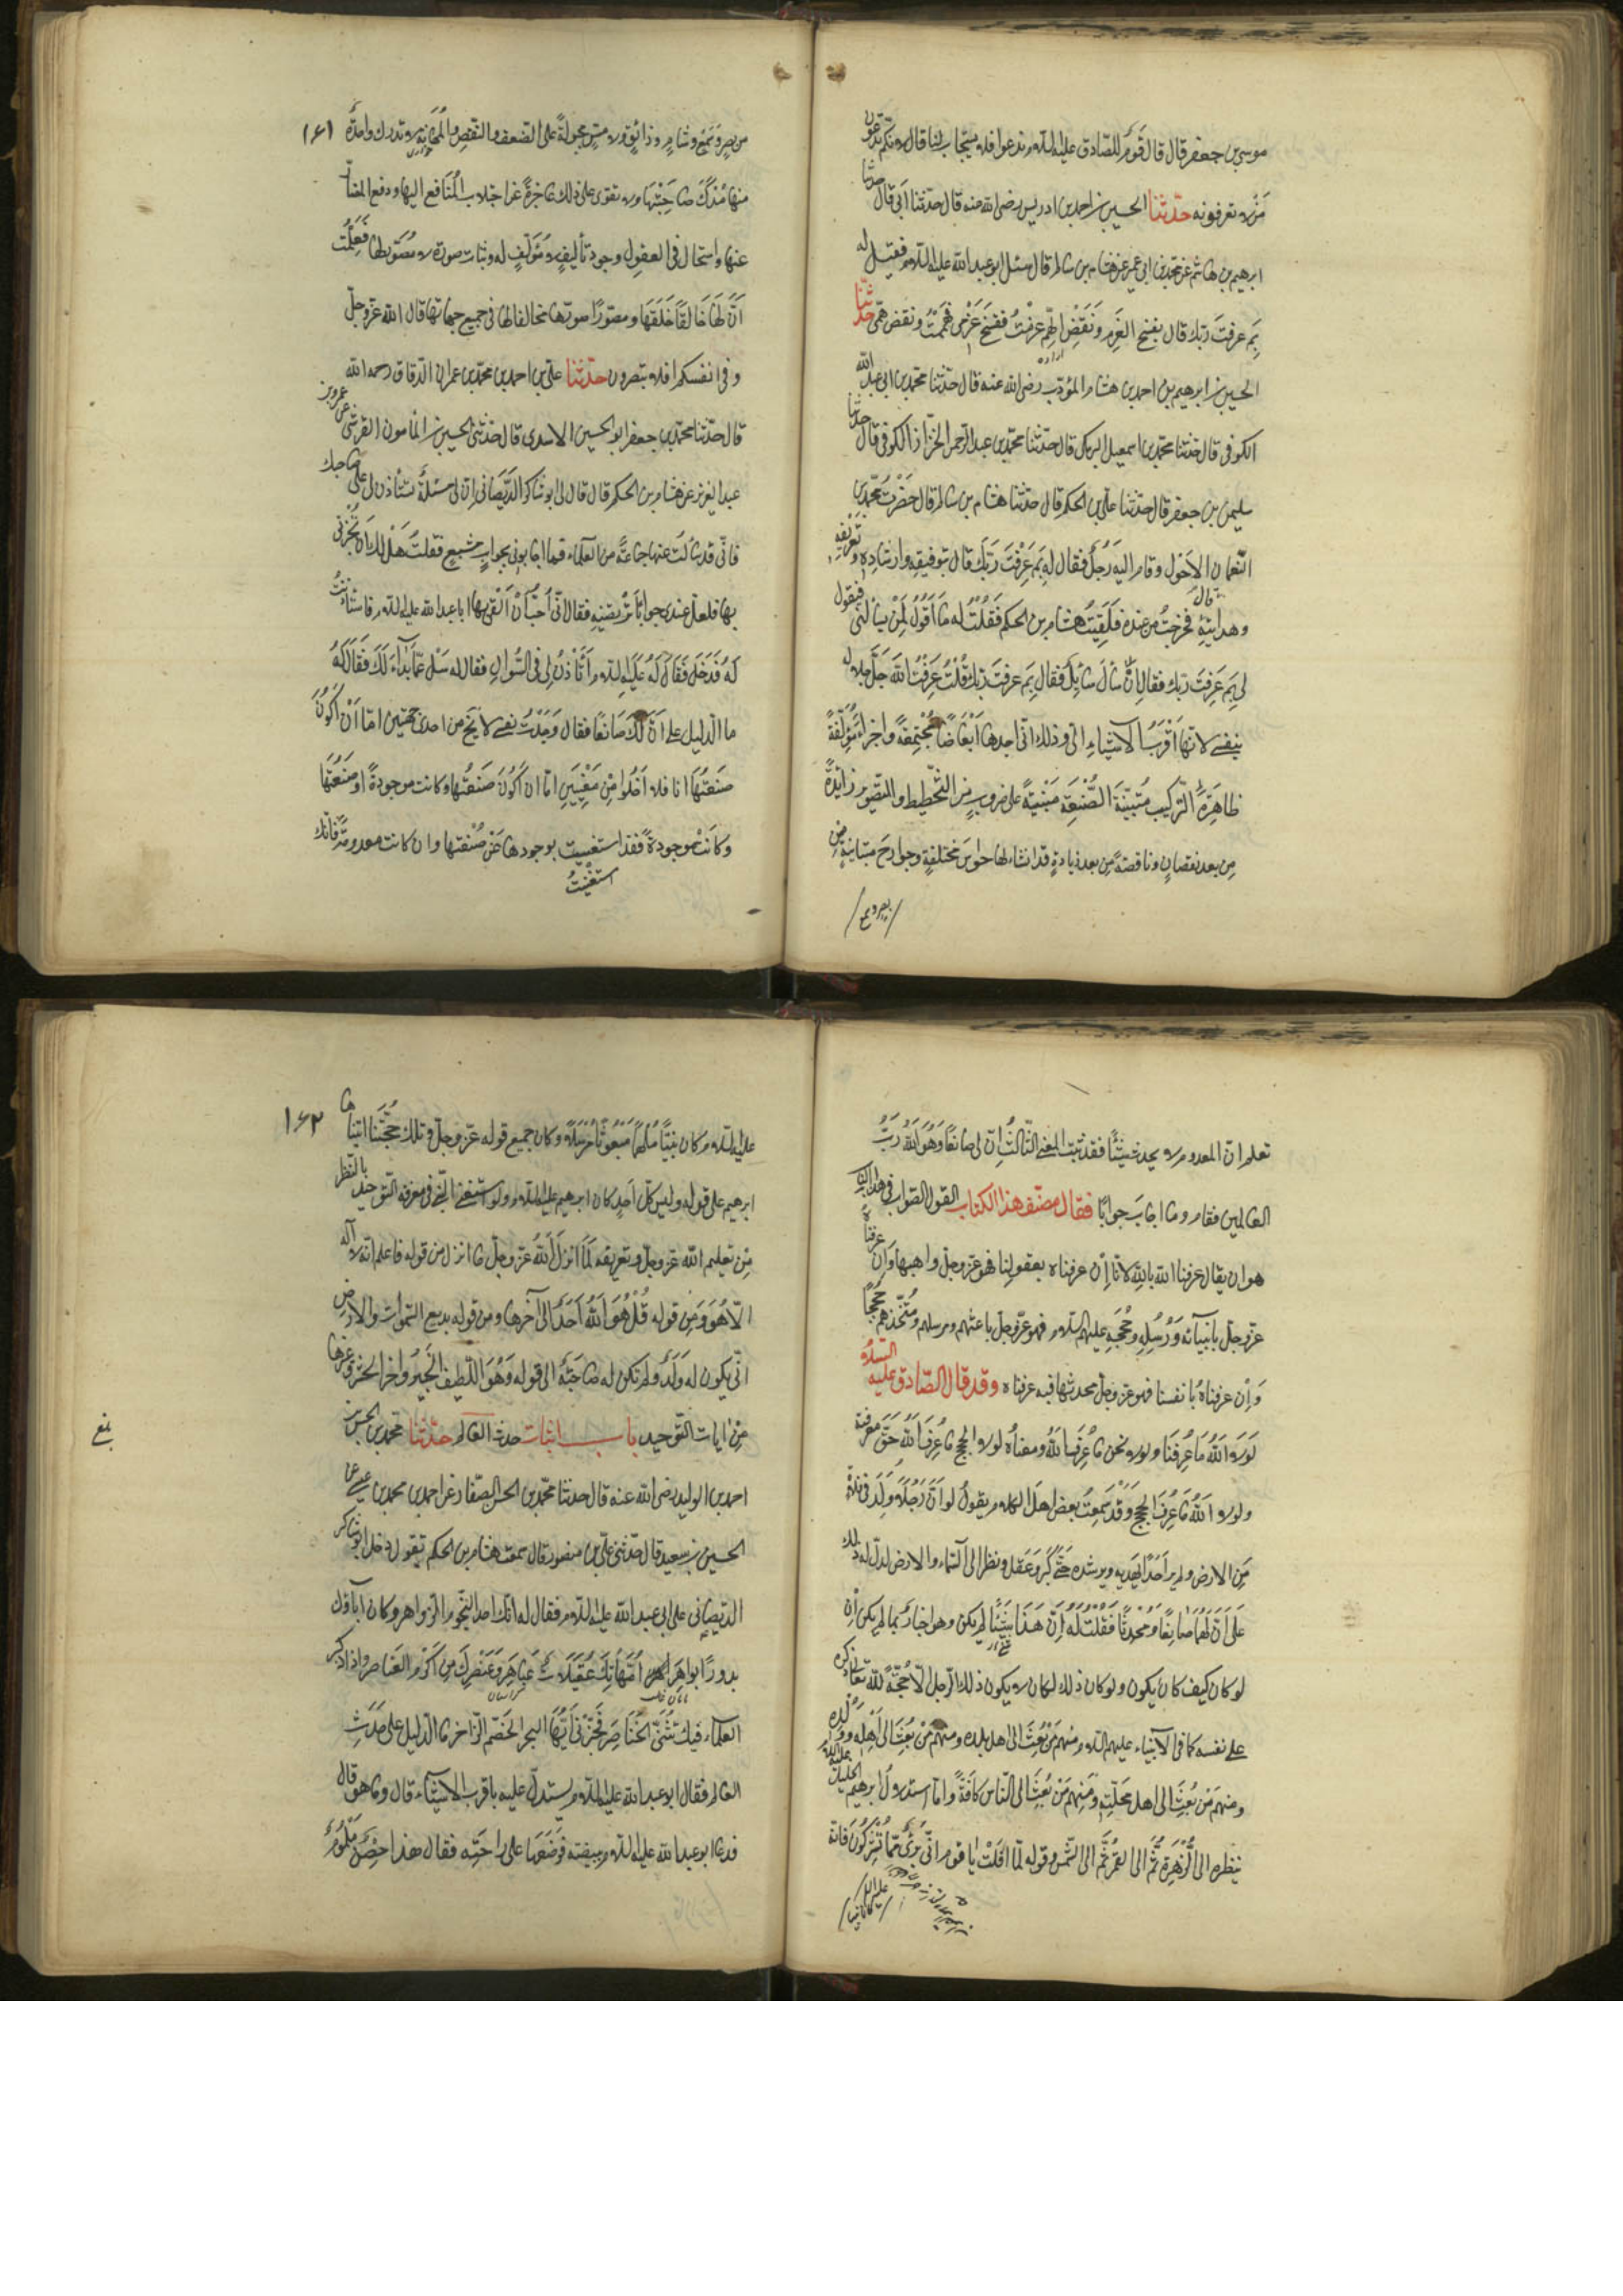 موسى بن جعفر قال قال قوم للصادق عليه السلام ندعوا فلا يستجاب لنا قال لانكم تدعون
من لا تعرفونه حدّثنا الحسين بن احمد بن ادريس رضى الله عنه قال حدّثنا أبي قال حدثنا
ابرهيم بن هاشم عن محمد بن ابي عمير عن هشام بن سالم قال سئل ابو عبد الله عليه السلام فقيل له
بِمَ عرفتَ ربك قال بفسخ العَزم ونَقضِ الهِّم عزمتُ ففسخ عَزْمى وهَممتُ ونقض همّى حدّثنا
الحسين بن ابرهيم بن احمد بن هشام المؤدّب رضى الله عنه قال حدّثنا محمّد بن ابى عبد الله
الكوفى قال حدّثنا محمّد بن اسمعيل البرمكى قال حدّثنا محمّد بن عبد الرحمن الخزّاز الكوفى قال حدثنا
سليمن بن جعفر قال حدّثنا علىّ بن الحكم قال حدّثنا هشام بن سالم قال حَضَرْتُ محمّد بن
النّعمان الاَحْوَل وقام اليه رَجُلٌ فقال له بِمَ عَرَفْتَ رَبَّكَ قال بتوفيقِهِ وارشادِهِ وتَعْرِيفِهِ
وهدايتِهِ قال فخرجتُ من عنده فَلَقِيتُ هشام بن الحكم فَقُلْتُ له ما أقُولُ لِمَنْ يسألنى فيقول
لى بِمَ عَرَفتَ ربّك فقال اِنْ سَأَلَ سَائِلٌ فقال بِمَ عرفتَ ربّك قُلْتُ عَرَفْتُ الله جَلَّ جلاله
بنفسى لانّها اَقْرَبُ الاشياءِ الىّ وذلك انّى اجدها اَبْعَاضًا مُجْتَمِعَةً واجزاءً مُؤْتَلِفَةً
ظاهِرَةَ التّركيب مُتَبَيِّنَةَ الصَّنْعَةِ مَبْنيَّةً على ضروبٍ من التَّخْطيط والتّصوير زائدةً
مِن بعد نقصانٍ وناقصةً مِن بعد زيادةٍ قد انشاء لها حواسّ مختلفةٍ وجوارحَ متباينةٍ من
بصر وسمع
من بصرٍ وسَمْعٍ وشامٍّ وذائقٍ ولامسٍ مجبولةً على الضعف والنّقص والمَهَانَةِ لا تدرك واحدةٌ ١٦١
منها مُدْرَكَ صَاحِبَتِهَا ولا تقوى على ذلك عاجزةً عن اجتلاب المنافع اليها ودفع المضارّ
عنها واستحال فى العقول وجود تأليفٍ لا مُؤَلّفٍ له وثبات صورة لا مُصَوّر لها فَعَلِمْتُ
اَنَّ لها خَالِقًا خَلَقَهَا ومصوّرًا صوّرها مخالفا لها فى جميع جهاتها قال الله عزّ وجلّ
وفى انفسكم افلا تبصرون حدّثنا علىّ بن احمد بن محمّد بن عمران الدّقاق رحمه الله
قال حدّثنا محمّد بن جعفر ابو الحسين الاسدى قال حدّثنى الحسين بن المأمون القرشى عن عمرو بن
عبد العزيز عن هشام بن الحكم قال قال لى ابو شاكر الدّيصانى ان لى مسئلةً تستأذن لى على صاحبك
فانّى قد سَألتُ عنها جماعةً من العلماء فما اجابونى بجوابٍ مشبعٍ فقلتُ هل لك اَنْ تُخبرنى
بها فلعلّ عندى جوابًا تَرْتضيه فقال انّى اُحبُّ اَنْ اَلْقى بها ابا عبد الله عليه السلام فاستأذنتُ
له فَدَخَلَ فَقَالَ لَهُ عليه السلام اَتَأْذَنُ لى فى السُّؤالِ فقال له سَلْ عَمّا بَدَاءَ لَكَ فَقَالَ لَهُ
ما الدّليل على اَنَّ لَكَ صَانِعًا فقال وَجَدْتُ نفسى لا تَخْ من احدى جهتين امّا اَنْ اَكُونَ
صَنعتُها انا فلا اَخْلُوا مِنْ مَعْنيَينِ امّا ان اَكُونَ صَنعتُها وكانت موجودةً او صَنَعْتُها
وكانَتْ موجودةً فقد استغنيت بوجودها عن صَنْعَتها وان كانت معدومةً فانّك
استَغْنَيتُ
تعلم انّ المعدوم لا يحدث شيئًا فقد ثبت المعنى الثّالثُ اِنّ لى صانعًا وَهُوَ اللهُ رَبُّ
العالمين فقام وما اجابَ جوابًا فقال مصنّف هذا الكتاب القول الصّواب فى هذا الباب
هو ان يقال عرفنا الله بالله لانّا اِنْ عرفناه بعقولنا فهو عزّ وجلّ واهبها وَاِنْ عرفناه
عزّ وجلّ بانبيائه ورُسُلِهِ وحُجَجِهِ عليهم السلام فهو عزّ وجلّ باعثهم ومرسلهم ومُتّخذهم حُجَجًا
وَاِنْ عرفناهُ بانفسنا فهو عزّ وجلّ محدثها فبه عرفناه وقد قال الصّادق عليه السلام
لَوْلا اللهُ مَا عُرِفنَا ولولا نحن ما عُرِفَ اللهُ ومعناهُ لولا الحجج ما عُرِفَ اللهُ حَقَّ معرفته
ولولا اللهُ ما عُرِفَ الحجج وَقَدْ سَمِعْتُ بعض اهل الكلام يقولُ لو اَنّ رَجُلًا وُلِدَ فى فلاةٍ
مِنَ الارض ولم ير اَحَدًا يَهْديه ويرشده حَتّى كَبُرَ وعَقَلَ ونظر الى السّماء والارض لدلّه ذلك
عَلَى اَنّ لَهُمَا صَانِعًا وَمُحْدِثًا فَقُلْتُ لَهُ اِنّ هَذَا شَيْئًا لم يكن وهو اخبارٌ بما لم يكن اِنْ
لو كان كيف كان يكون ولو كان ذلك لكان لا يكون ذلك الرّجل الّا حُجّةً لله تعالى ذكره
على نفسه كما فى الانبياء عليهم السلام منهم مَنْ بُعِثَ الى اهل بلده ومنهم مَنْ بُعِثَ الى اَهْلِه ووَلده
ومنهم مَنْ بُعِثَ الى اهل محلّتِهِ ومَنِهم مَن بُعِثَ الى النّاس كافّةً وامّا استدلالُ ابرهيم الخليل عليه السلام
بنظره الى الزُّهَرةِ ثُمَّ الى القَمَرِ ثُمَّ الى الشّمس وقوله لمّا افَلَتْ يا قوم انّى بَرِىءٌ ممّا تُشْرِكُونَ فانّه
عليه السلام كان نبيا
عليه السلام كان نبيًّا مُلْهَمًا مَبْعُوثًا مُرْسَلًا وكان جميع قوله عزّ وجلّ وتلك حُجّتنَا اتيناها ١٦٢
ابرهيم على قومه وليس كلّ اَحَدٍ كان ابرهيم عليه السلام ولو استغنى فى معرفة التّوحيد بالنّظر
مِن تعليم الله عزّ وجلّ وتعريفه لَمَا انزلَ اللهُ عزّ وجلّ ما انزل من قوله فاعلم انّه لا اله
الّا هُوَ وَمِن قوله قُلْ هُوَ اللهُ اَحَدٌ الى آخرها ومن قوله بديع السّموات والارض
انّى يكون له وَلَدٌ ولم تكن له صَاحِبَةٌ الى قوله وَهُوَ اللّطيفُ الخَبيرُ وآخر الحشر وغيرها
مِنْ ايات التّوحيد باب اثبات حدث العالم حدّثنا محمّد بن الحسن بن
احمد بن الوليد رضى الله عنه قال حدثنا محمّد بن الحسن الصّفار عن احمد بن محمد بن عيسى عن
الحسين بن سعيد قال حدّثنى علىّ بن منصور قال سمعت هشام بن الحكم يقول دخل ابو شاكر
الديصانى على ابى عبد الله عليه السلام فقال له انّك احد النّجوم الزّواهر وكان آباؤك
بدورًا بواهِرَ اُمّهاتُكَ عَقِيلاتٌ عَبَاهِرَ وعَنصرك مِن اَكْرَمِ العَناصر واذا ذكر
العلماء فبك تُثْنَى الخَنَاصِرَ فَخَبِّرْنى اَيّهَا البحر الخَضَمّ الزّاخر ما الدّليل على حَدَثِ
العالم فقال ابو عبد الله عليه السلام يستدلّ عليه باقرب الاشياء قال وما هو قال
فدعا ابو عبد الله عليه السلام ببيضة فوَضَعَها على راحَتِه فقال هذا حِصْنٌ مَلْمُومٌ
بلغ